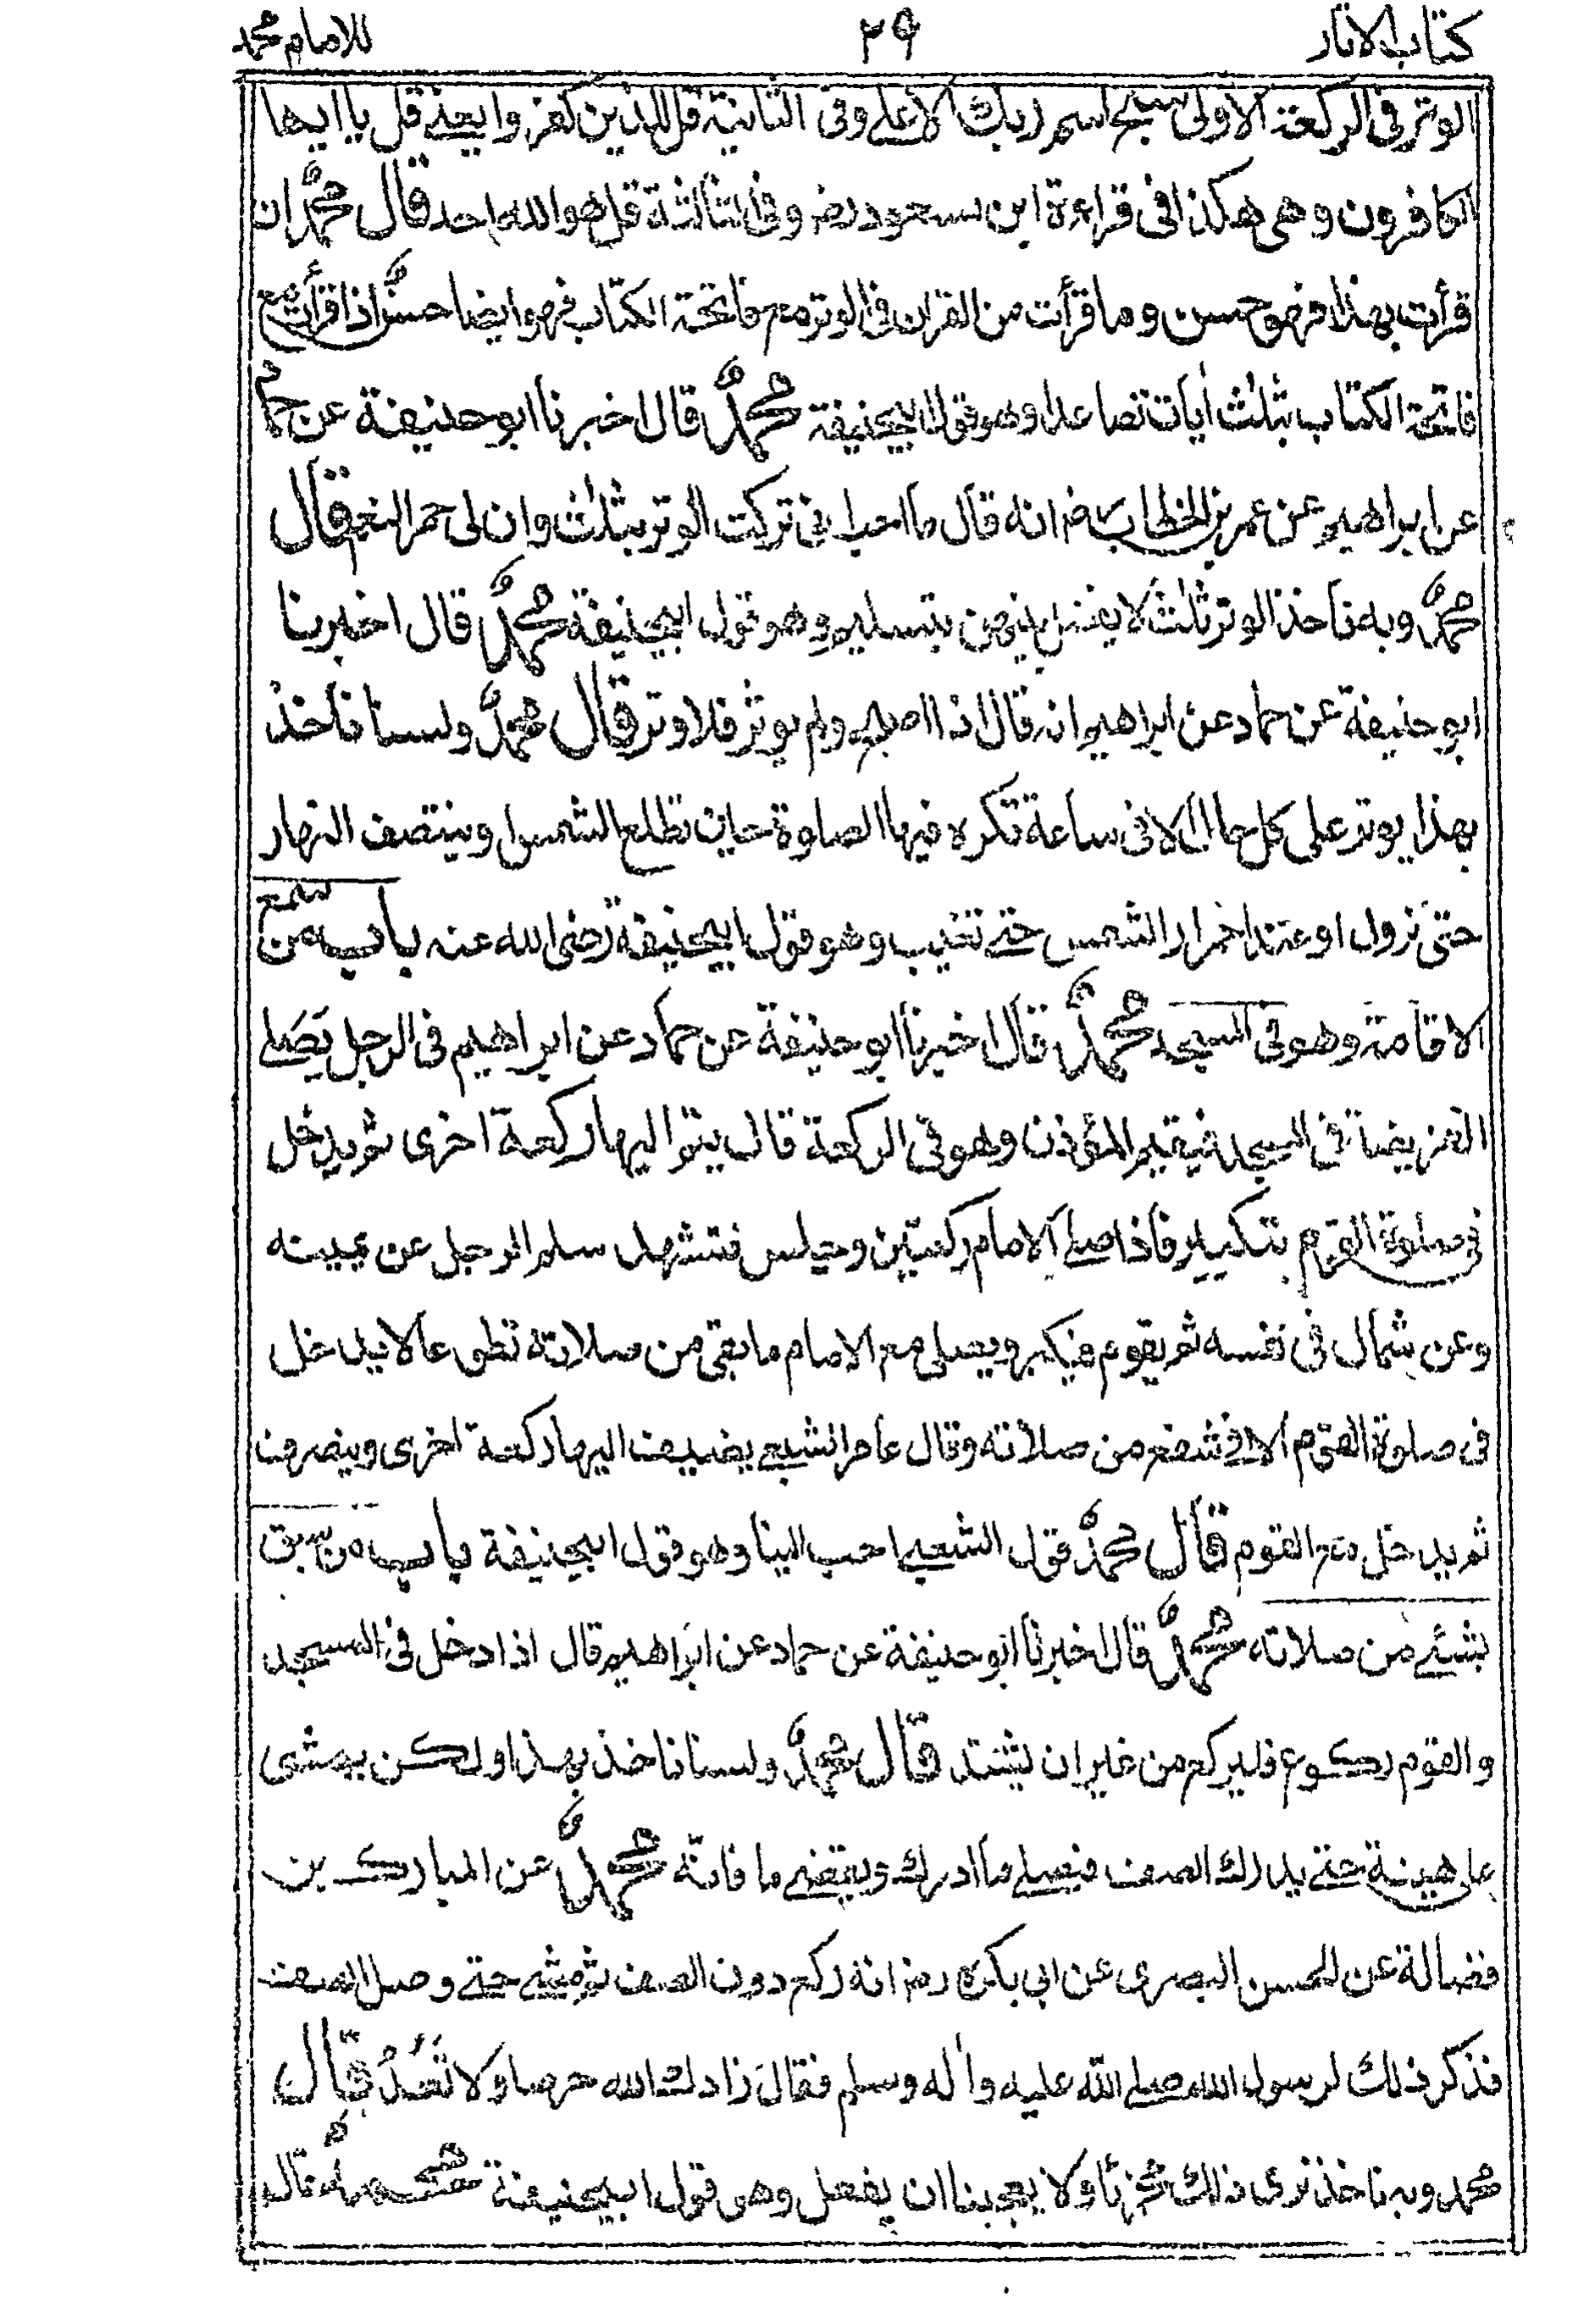 كتاب الاثار ٢٩ للامام محمد
الوتر فى الركعة الاولى سبح اسم ربك الاعلے وفى الثانية قل للذين كفروا يعنے قل يا ايها
الكافرون وهى هكذا فى قراءة ابن مسعود رضـ وفى الثالثة قل هو الله احد قال محمدؒ ان
قرأت بهذا فهو حسن وما قرأت من القران فى الوتر مع فاتحة الكتاب فهو ايضا حسنٌ اذا قرأت مع
فاتحة الكتاب بثلث اٰيات فصاعدا وهو قول ابيحنيفة محمدؒ قال اخبرنا ابو حنيفة عن حماد
عن ابراهيم عن عمر بن الخطاب رضـ انه قال ما احب انى تركت الوتر بثلاث وان لى حمر النعم قال
محمدؒ وبه ناخذ الوتر ثلاث لا يفصل بينهن بتسليم وهو قول ابيحنيفة محمدؒ قال اخبرنا
ابو حنيفة عن حماد عن ابراهيم انه قال اذا اصبح ولم يوتر فلا وتر قال محمدؒ ولسنا ناخذ
بهذا يوتر على كل حال الا فى ساعة تكره فيها الصلوة حين تطلع الشمس او ينتصف النهار
حتى تزول او عند احمرار الشمس حتے تغيب وهو قول ابيحنيفة رضى الله عنه باب من سمع
الاقامة وهو فى المسجد محمدؒ قال اخبرنا ابو حنيفة عن حماد عن ابراهيم فى الرجل يصلے
الفريضة فى المسجد فيقيم المؤذن وهو فى الركعة قال يتم اليها ركعة اخرى ثم يدخل
فى صلوة القوم بتكبير فاذا صلے الامام ركعتين وجلس فتشهد سلم الرجل عن يمينه
وعن شمال فى نفسه ثم يقوم فيكبر ويصلى مع الامام ما بقى من صلاته تطوعا لا يدخل
فى صلوة القوم الا فى شفع من صلاته وقال عامر الشعبے يضيف اليها ركعة اخرى وينصرف
ثم يدخل مع القوم قال محمدؒ قول الشعبے احب الينا وهو قول ابيحنيفة باب من سبق
بشئے من صلاته محمدؒ قال اخبرنا ابو حنيفة عن حماد عن ابراهيم قال اذا دخل فى المسجد
والقوم ركوع فليركع من غير ان يشتد قال محمدؒ ولسنا ناخذ بهذا ولكن يمشى
على هينة حتے يدرك الصف فيصلے ما ادرك ويقضے ما فاته محمدؒ عن المبارك بن
فضالة عن الحسن البصرى عن ابى بكره رضـ انه ركع دون الصف ثم مشے حتے وصل الصف
فذكر ذلك لرسول الله صلے الله عليه واٰله وسلم فقال زادك الله حرصا ولا تَعُدْ قال
محمد وبه ناخذ نرى ذلك مجزئا ولا يعجبنا ان يفعل وهو قول ابيحنيفة محمدؒ قال